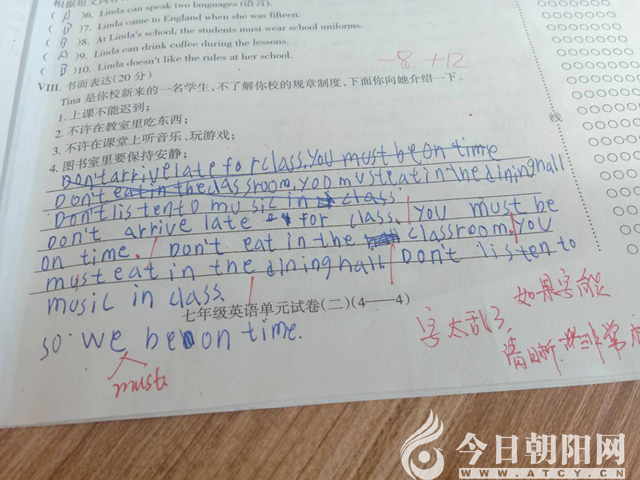 6. Linda can speak two languages (语言).
( D )7. Linda came to England when she was fifteen.
( B )8. At Linda's school, the students must wear school uniforms.
( A )9. Linda can drink coffee during the lessons.
( B )10. Linda doesn't like the rules at her school.
-8 +12
VIII. 书面表达(20 分)
Tina 是你校新来的一名学生,不了解你校的规章制度,下面你向她介绍一下。
1. 上课不能迟到;
2. 不许在教室里吃东西;
3. 不许在课堂上听音乐、玩游戏;
4. 图书室里要保持安静;
线
Don't arrive late for class. You must be on time
Don't eat in the classroom. you must eat in the dining hall
Don't listen to music in class
Don't arrive late for class. You must be
on time. Don't eat in the classroom. You
must eat in the dining hall. Don't listen to
music in class.
七年级英语单元试卷(二)(4—4)
so we be on time.
must
字太乱了,
如果字能
清晰
非常
今日朝阳网
WWW.ATCY.CN